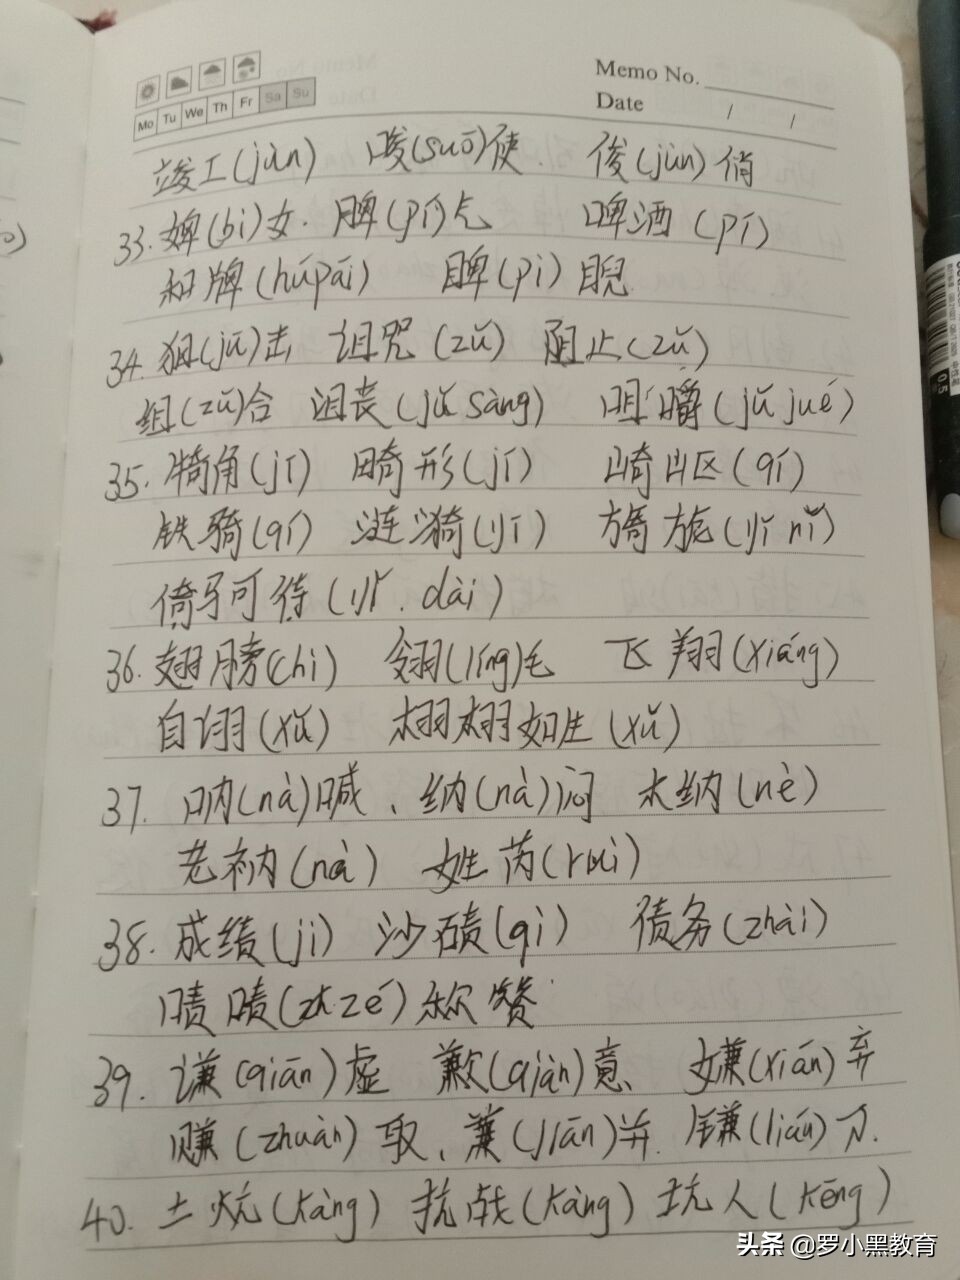 Memo No.
Mo Tu We Th Fr Sa Su
Date / /
竣工(jùn) 唆(suō)使. 俊(jùn)俏
33. 婢(bì)女. 脾(pí)气 啤酒(pí)
和牌(húpái) 睥(pì)睨
34. 狙(jū)击 诅咒(zǔ) 阻止(zǔ)
组(zǔ)合 沮丧(jǔ sàng) 咀嚼(jǔ jué)
35. 犄角(jī) 畸形(jī) 崎岖(qí)
铁骑(qí) 涟漪(yī) 旖旎(yǐ nǐ)
倚马可待(yǐ. dài)
36. 翅膀(chì) 翎(líng)毛 飞翔(xiáng)
自诩(xǔ) 栩栩如生(xǔ)
37. 呐(nà)喊、纳(nà)闷 木讷(nè)
老衲(nà) 姓芮(ruì)
38. 成绩(jì) 沙碛(qì) 债务(zhài)
啧啧(zé)称赞
39. 谦(qiān)虚 歉(qiàn)意、 嫌(xián)弃
赚(zhuàn)取、兼(jiān)并. 镰(lián)刀.
40. 土炕(kàng) 抗战(kàng) 坑人(kēng)
0.5
头条 @罗小黑教育